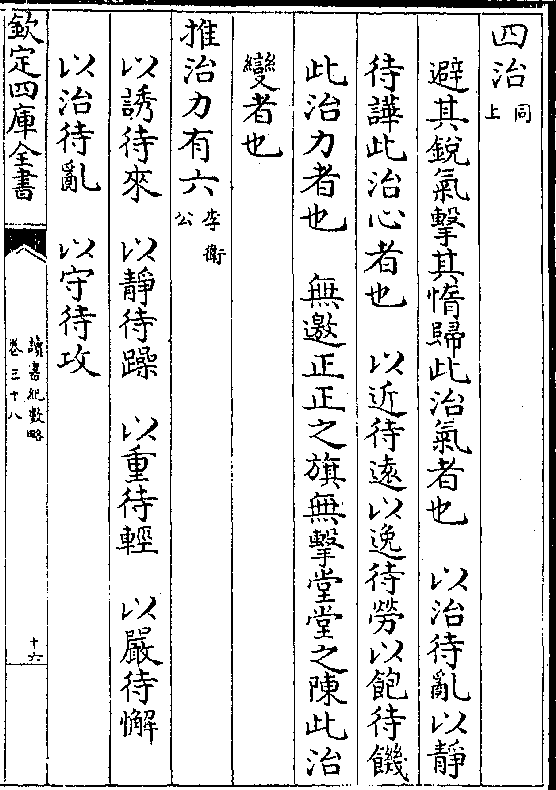 四治同上
避其銳氣擊其惰歸此治氣者也　以治待亂以靜
待譁此治心者也　以近待遠以逸待勞以飽待饑
此治力者也　無邀正正之旗無擊堂堂之陳此治
變者也
推治力有六李衛公
以誘待來　以靜待躁　以重待輕　以嚴待懈
以治待亂　以守待攻
欽定四庫全書
讀書紀數略
卷三十八
十六